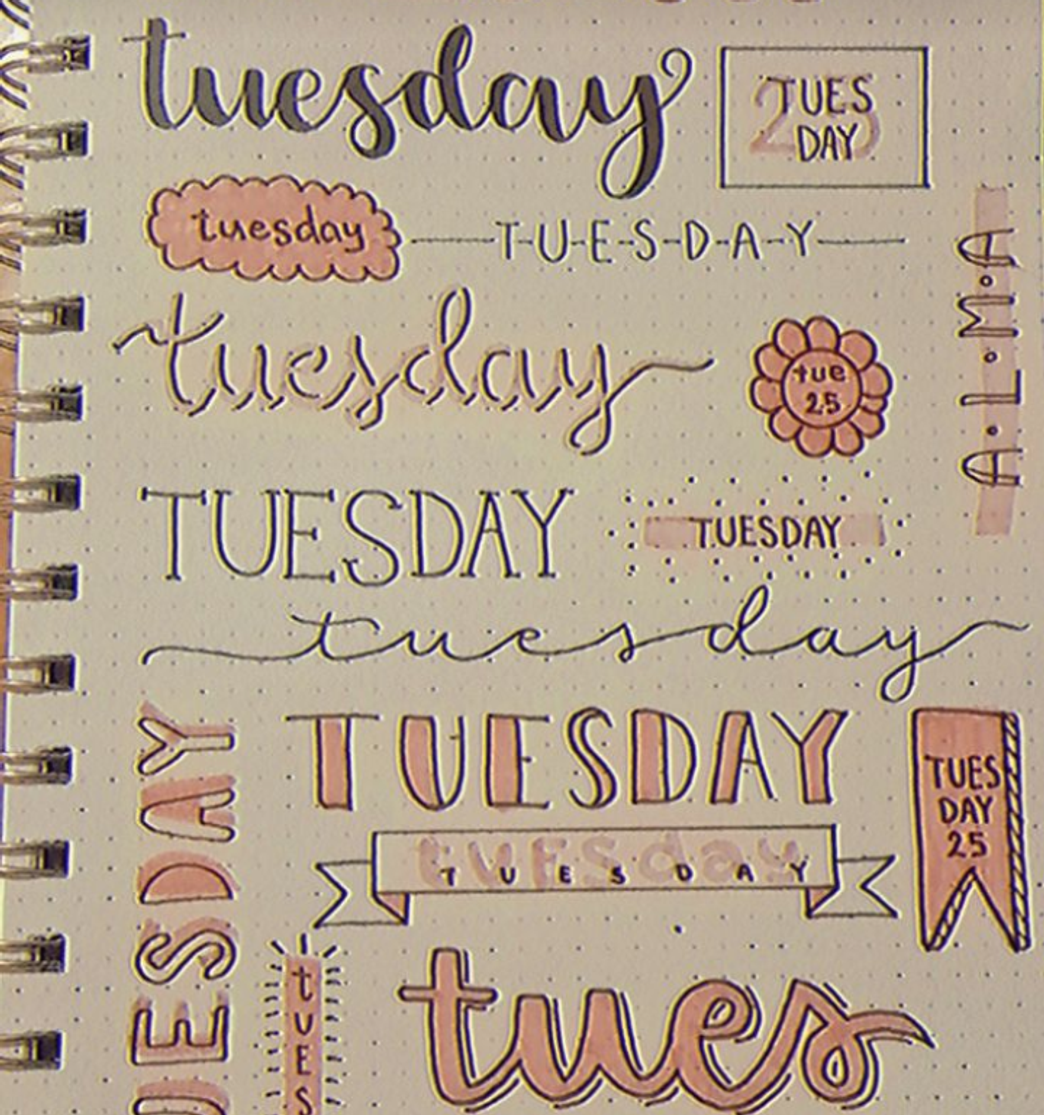 tuesday
25
TUES
DAY
tuesday
T-U-E-S-D-A-Y
A•L•M•A
tuesday
tue
25
TUESDAY
TUESDAY
tuesday
TUESDAY
TUESDAY
TUES
DAY
25
tuesday
TUESDAY
UESDAY
tues
tues